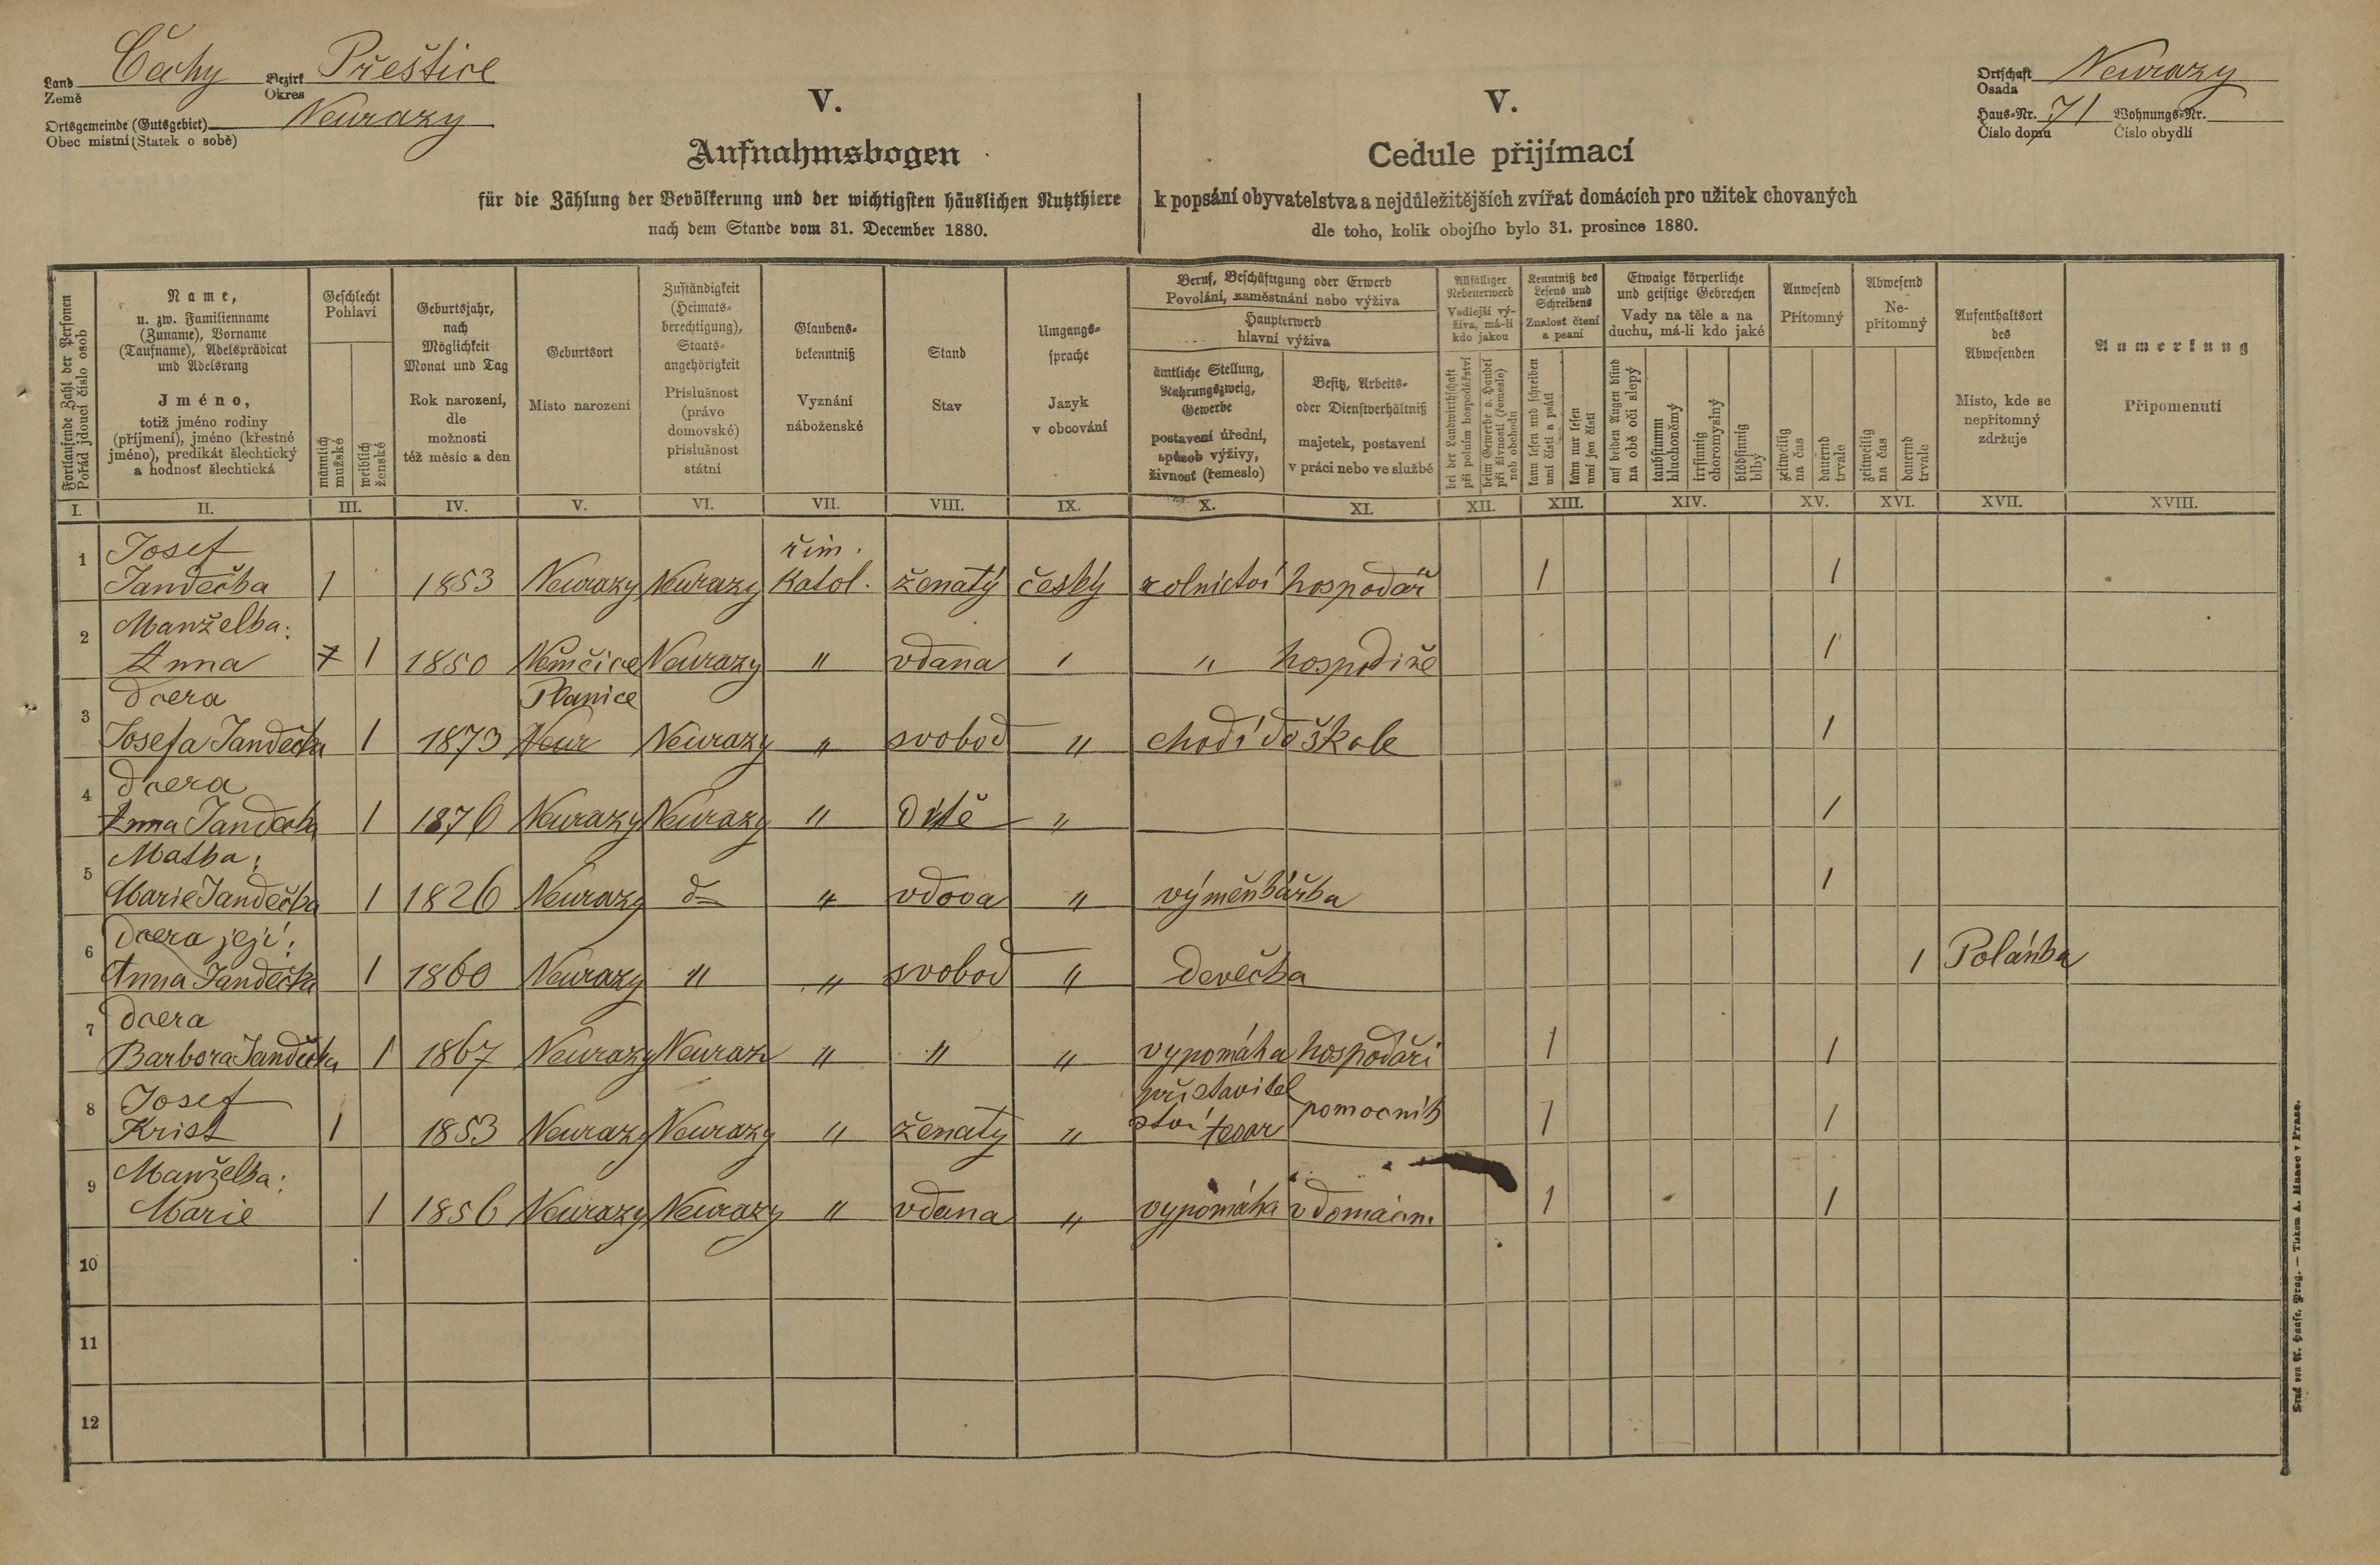 Land Čechy Bezirk Přeštice
Země Okres
Ortsgemeinde (Gutsgebiet) Neurazy
Obec místní (Statek o sobě)
V.
Aufnahmsbogen
für die Zählung der Bevölkerung und der wichtigsten häuslichen Nutzthiere
nach dem Stande vom 31. December 1880.
V.
Cedule přijímací
k popsání obyvatelstva a nejdůležitějších zvířat domácích pro užitek chovaných
dle toho, kolik obojího bylo 31. prosince 1880.
Ortschaft Neurazy
Osada
Haus-Nr. 71 Wohnungs-Nr.
Číslo domu Číslo obydlí
Fortlaufende Zahl der Personen
Pořád jdoucí číslo osob
Name,
u. zw. Familienname
(Zuname), Vorname
(Taufname), Adelsprädicat
und Adelsrang
Jméno,
totiž jméno rodiny
(příjmení), jméno (křestné
jméno), predikát šlechtický
a hodnosť šlechtická
Geschlecht
Pohlaví
männlich
mužské
weiblich
ženské
Geburtsjahr,
nach
Möglichkeit
Monat und Tag
Rok narození,
dle
možnosti
též měsíc a den
Geburtsort
Místo narození
Zuständigkeit
(Heimats-
berechtigung),
Staats-
angehörigkeit
Příslušnost
(právo
domovské)
příslušnost
státní
Glaubens-
bekenntniß
Vyznání
náboženské
Stand
Stav
Umgangs-
sprache
Jazyk
v obcování
Beruf, Beschäftigung oder Erwerb
Povolání, zaměstnání nebo výživa
Haupterwerb
hlavní výživa
ämtliche Stellung,
Nahrungszweig,
Gewerbe
postavení úřední,
spůsob výživy,
živnosť (řemeslo)
Besitz, Arbeits-
oder Dienstverhältniß
majetek, postavení
v práci nebo ve službě
Allfälliger
Nebenerwerb
Vedlejší vý-
živa, má-li
kdo jakou
bei der Landwirthschaft
při polním hospodářství
beim Gewerbe o. Handel
při živnosti (řemesle)
neb obchodu
Kenntniß des
Lesens und
Schreibens
Znalosť čtení
a psaní
kann lesen und schreiben
umí čísti a psáti
kann nur lesen
umí jen čísti
Etwaige körperliche
und geistige Gebrechen
Vady na těle a na
duchu, má-li kdo jaké
auf beiden Augen blind
na obě oči slepý
taubstumm
hluchoněmý
irrsinnig
choromyslný
blödsinnig
blbý
Anwesend
Přítomný
zeitweilig
na čas
dauernd
trvale
Abwesend
Ne-
přítomný
zeitweilig
na čas
dauernd
trvale
Aufenthaltsort
des
Abwesenden
Místo, kde se
nepřítomný
zdržuje
Anmerkung
Připomenutí
I. II. III. IV. V. VI. VII. VIII. IX. X. XI. XII. XIII. XIV. XV. XVI. XVII. XVIII.
Josef řím.
1 Jandečka 1 1853 Neurazy Neurazy katol. ženatý český rolnictví hospodář 1 1
Manželka:
2 Anna 1 1 1850 Němčice Neurazy " vdaná " " hospodině 1
dcera Plánice
3 Josefa Jandečka 1 1873 Neur Neurazy " svobod " chodí do škole 1
dcera
4 Anna Jandečka 1 1876 Neurazy Neurazy " dítě " 1
Matka:
5 Marie Jandečka 1 1826 Neurazy d " vdova " výměnkářka 1
Dcera její:
6 Anna Jandečka 1 1860 Neurazy " " svobod " děvečka 1 Polánka
dcera
7 Barbora Jandečka 1 1867 Neurazy Neurazy " " " vypomáhá hospodáři 1 1
Josef při stavitel
8 Krist 1 1853 Neurazy Neurazy " ženatý " ství tesar pomocník 1 1
Manželka:
9 Marie 1 1856 Neurazy Neurazy " vdaná " vypomáhá v domácn. 1 1
10
11
12
Druck von A. Haase, Prag. — Tiskem A. Haase v Praze.